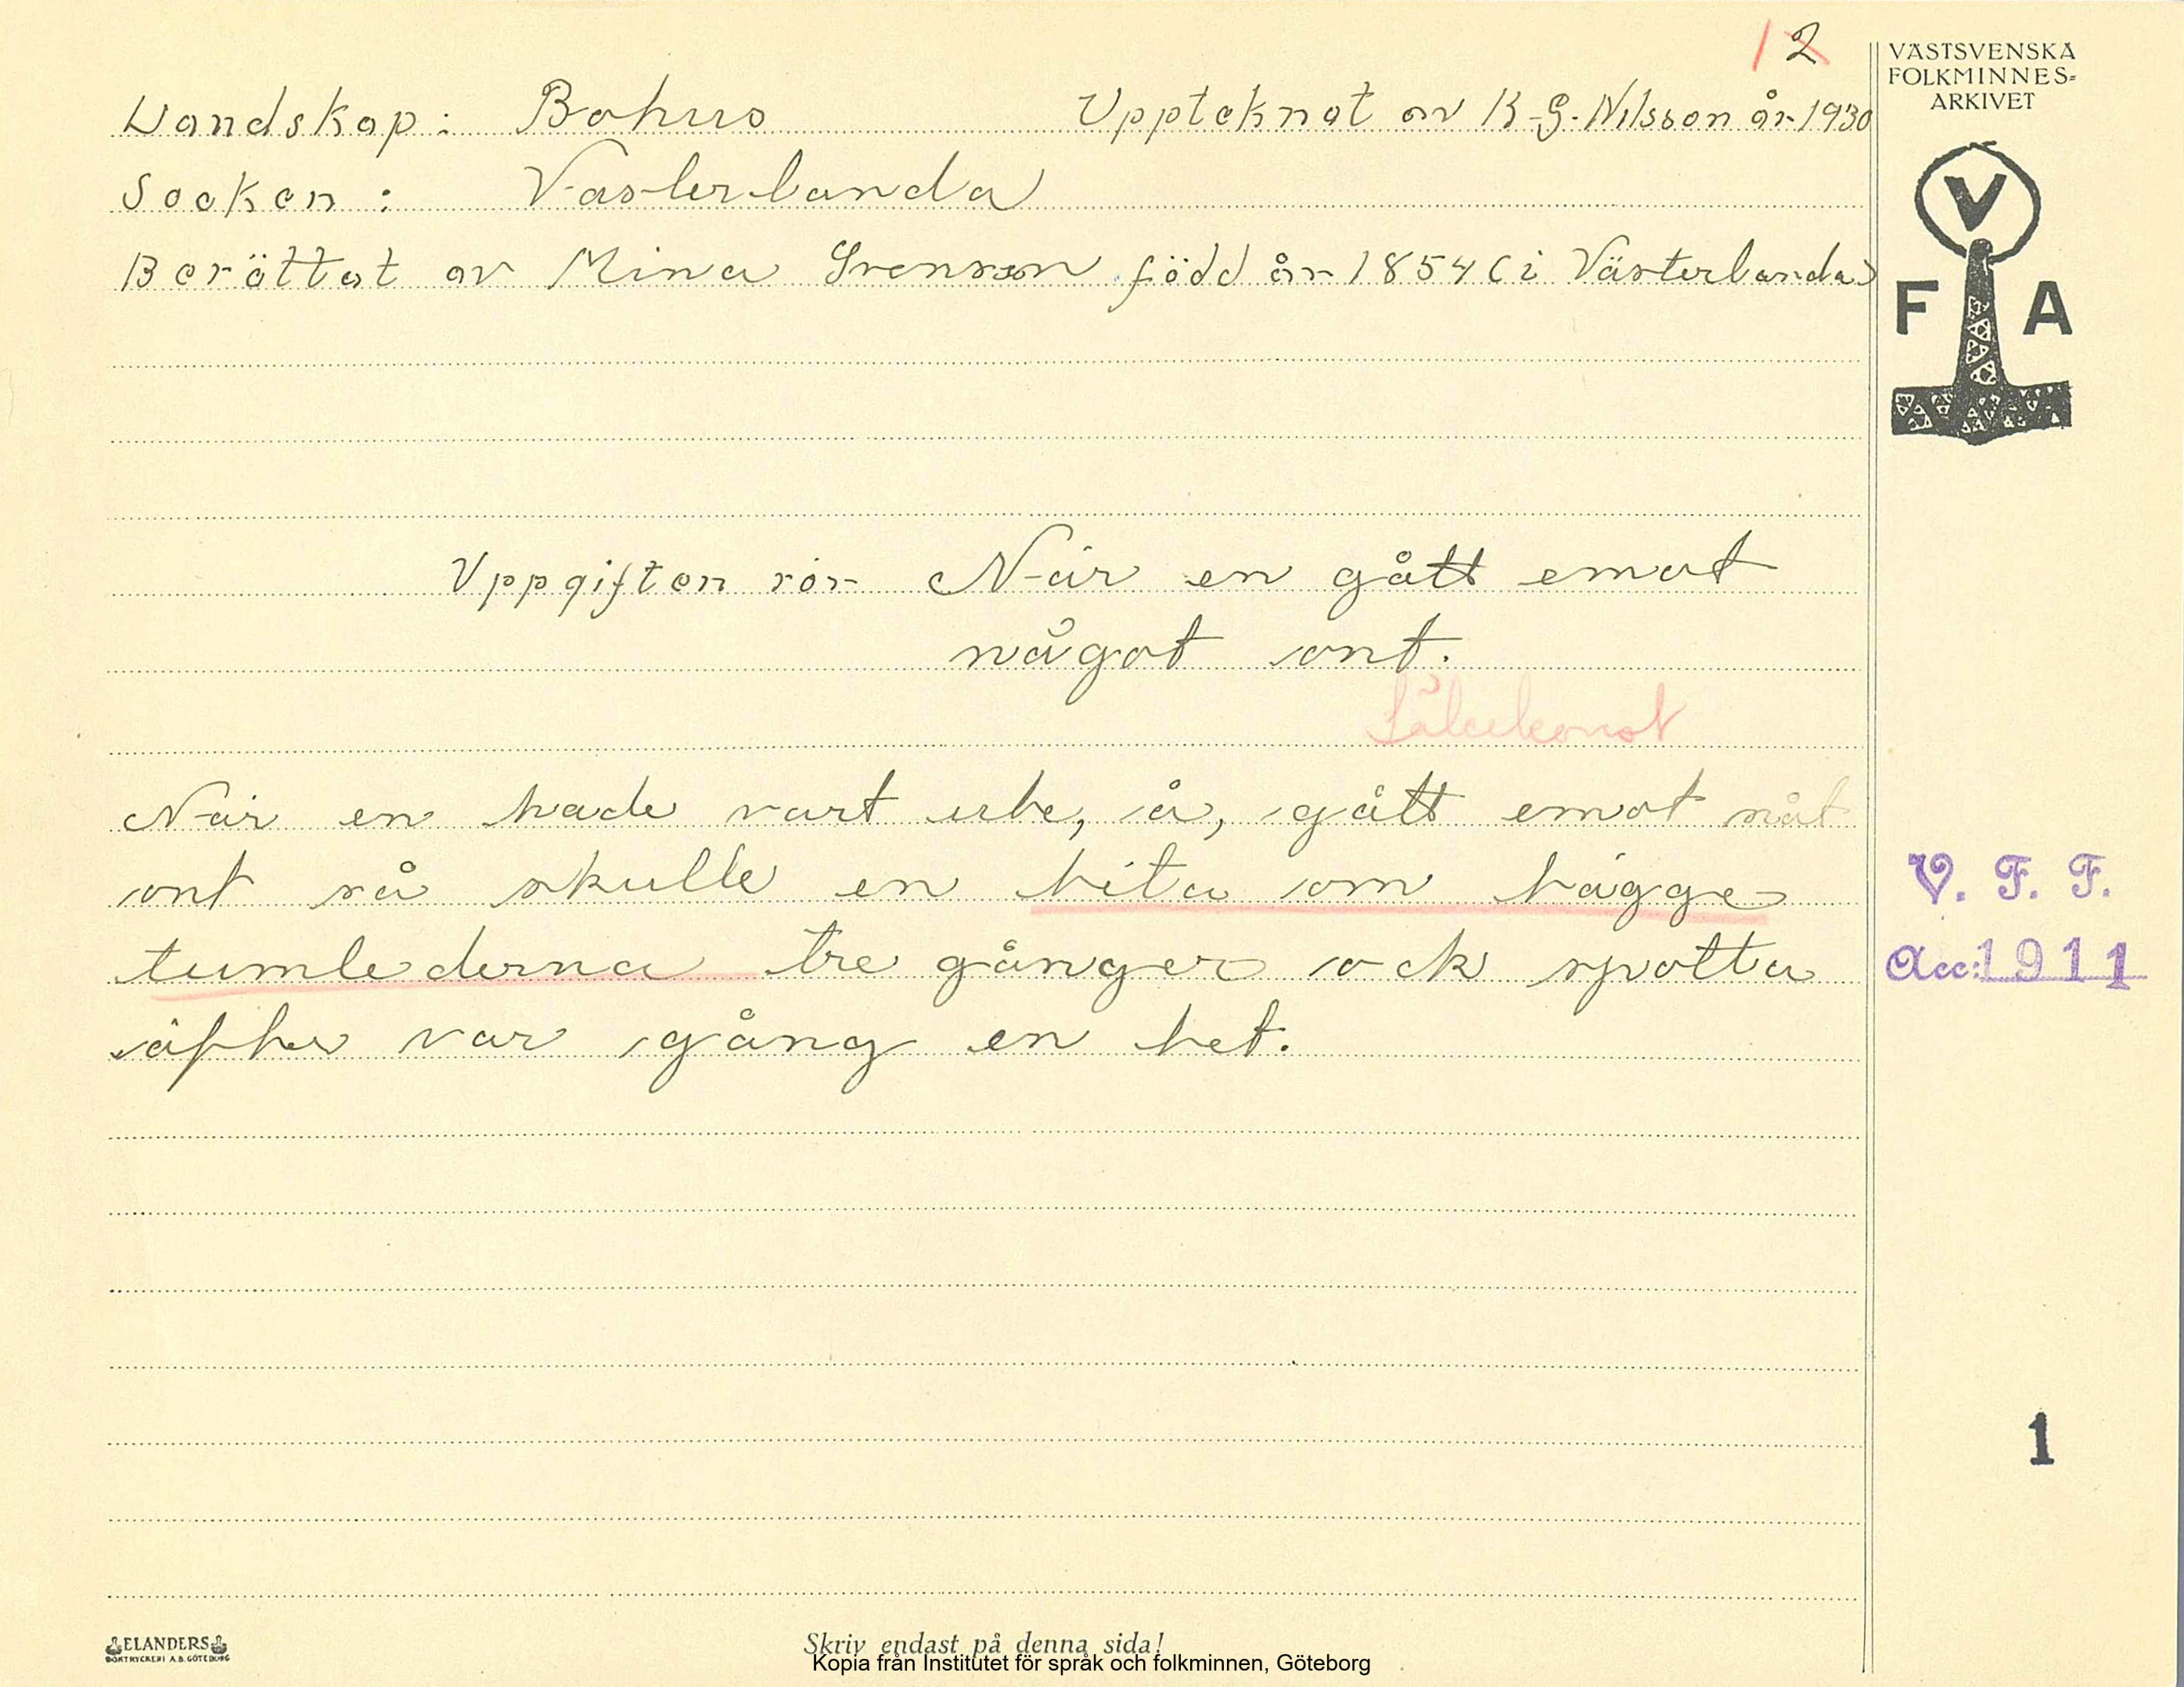 12
VÄSTSVENSKA
FOLKMINNES=
ARKIVET
Landskap: Bohus Uppteknat av K-G. Nilsson år 1930
Socken: Västerlanda
Berättat av Mina Svensson född år 1854 (i Västerlanda)
V
F A
Uppgiften rör När en gått emot
något ont.
Läkekonst
När en hade vart ude, å, gått emot nåt
ont så skulle en bita om bägge
tumlederna tre gånger ock spotta
var gång en bet.
V. F. F.
Acc: 1911
1
ELANDERS
BOKTRYCKERI A.B. GÖTEBORG
Skriv endast på denna sida!
Kopia från Institutet för språk och folkminnen, Göteborg